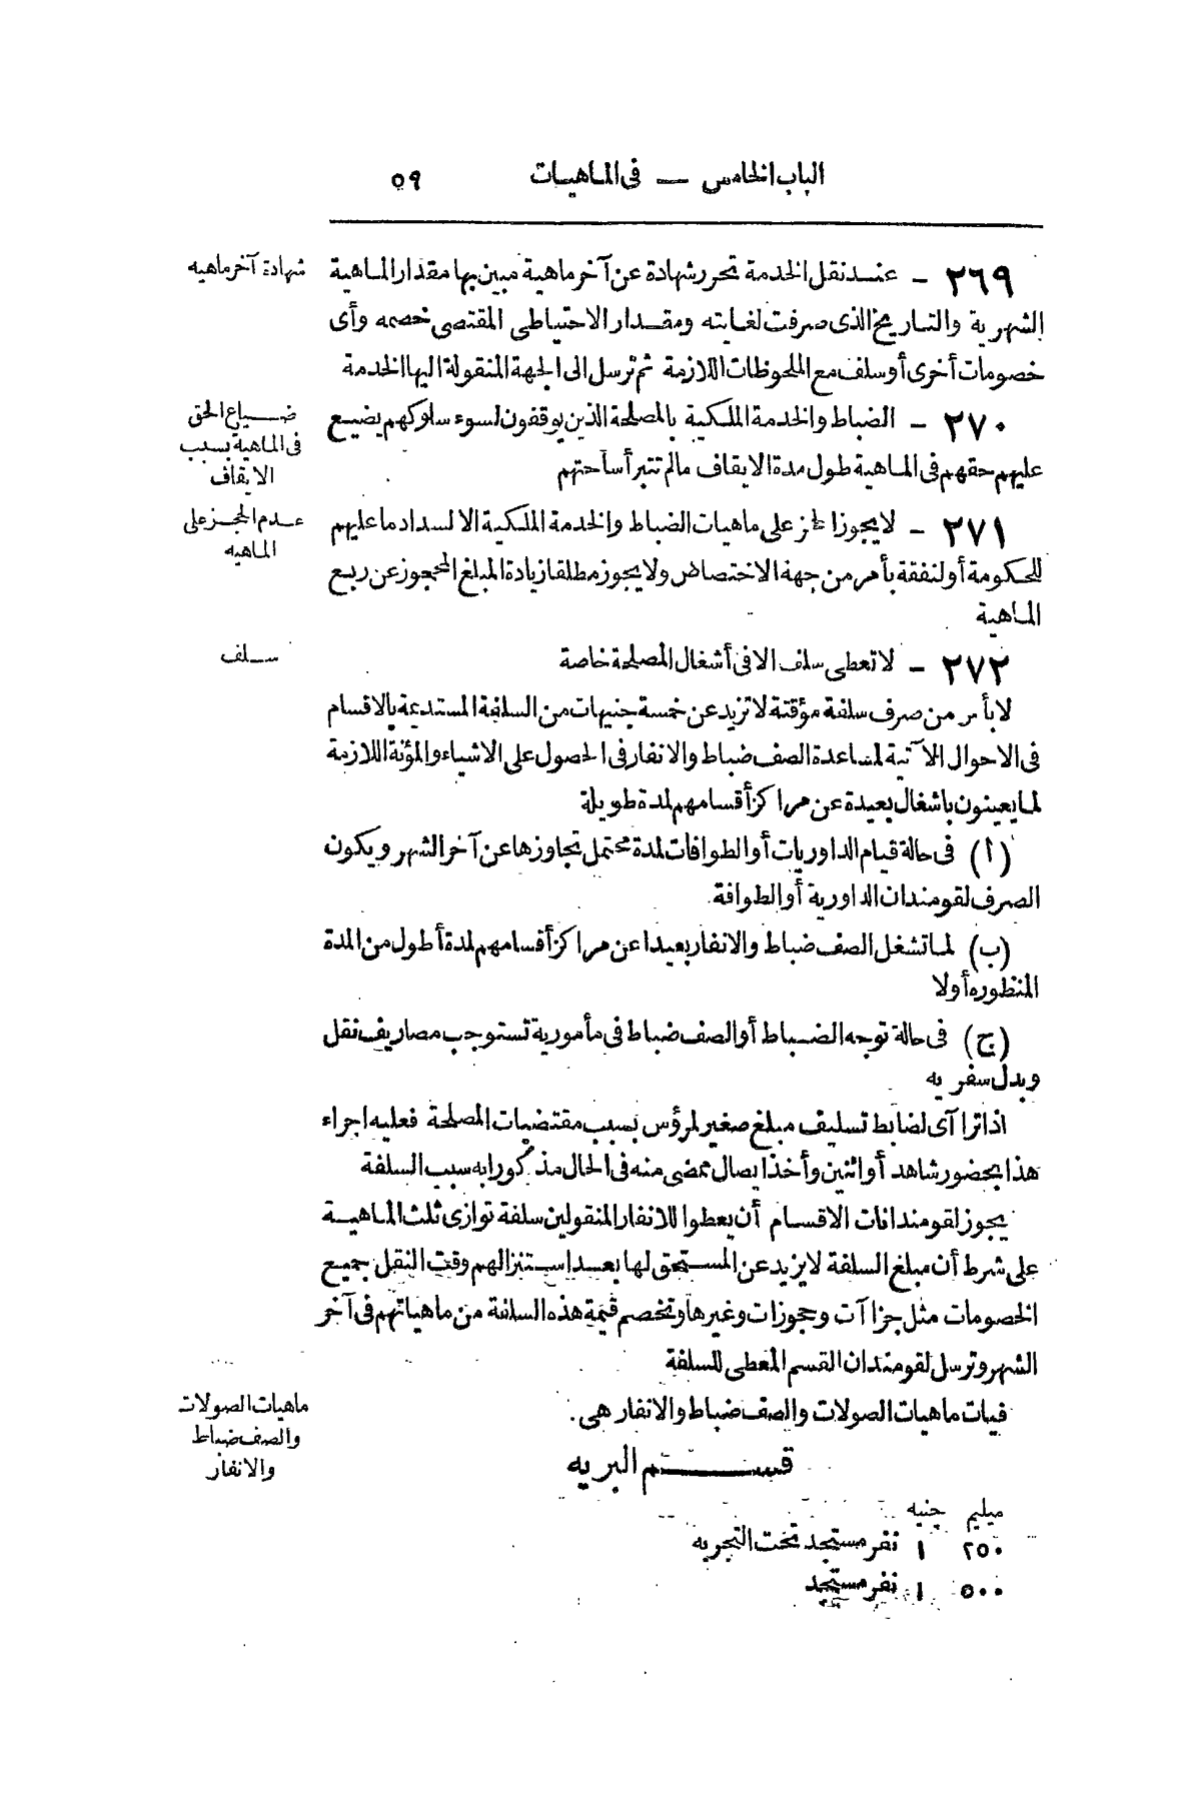 الباب الخامس — فى الماهيات ٥٩
٢٦٩ - عند نقل الخدمة تحرر شهادة عن آخر ماهية مبين بها مقدار الماهية
شهادة آخر ماهيه
الشهرية والتاريخ الذى صرفت لغايته ومقدار الاحتياطى المقتضى خصمه وأى
خصومات أخرى أو سلف مع الملحوظات اللازمة ثم ترسل الى الجهة المنقولة اليها الخدمة
٢٧٠ - الضباط والخدمة الملكية بالمصلحة الذين يوقفون لسوء سلوكهم يضيع
عليهم حقهم فى الماهية طول مدة الايقاف مالم تتبرأ ساحتهم
ضياع الحق
فى الماهية بسبب
الايقاف
٢٧١ - لا يجوز الحجز على ماهيات الضباط والخدمة الملكية الا لسداد ما عليهم
للحكومة أو لنفقة بأمر من جهة الاختصاص ولا يجوز مطلقا زيادة المبلغ المحجوز عن ربع
الماهية
عدم الحجز على
الماهيه
٢٧٢ - لا تعطى سلف الا فى أشغال المصلحة خاصة
سلف
لا بأس من صرف سلفة مؤقتة لا تزيد عن خمسة جنيهات من السلفة المستديمة بالاقسام
فى الاحوال الآتية لمساعدة الصف ضباط والانفار فى الحصول على الاشياء والمؤنة اللازمة
لما يعينون باشغال بعيدة عن مراكز أقسامهم لمدة طويلة
(أ) فى حالة قيام الداوريات أو الطوافات لمدة محتمل تجاوزها عن آخر الشهر ويكون
الصرف لقومندان الداورية أو الطوافة
(ب) لما تشغل الصف ضباط والانفار بعيدا عن مراكز أقسامهم لمدة أطول من المدة
المنظوره أولا
(ج) فى حالة توجه الضباط أو الصف ضباط فى مأمورية تستوجب مصاريف نقل
وبدل سفريه
اذا تراآى لضابط تسليف مبلغ صغير لمرؤس بسبب مقتضيات المصلحة فعليه اجراء
هذا بحضور شاهد أو اثنين وأخذ ايصال ممضى منه فى الحال مذكورا به سبب السلفة
يجوز لقومندانات الاقسام أن يعطوا للانفار المنقولين سلفة توازى ثلث الماهية
على شرط أن مبلغ السلفة لا يزيد عن المستحق لها بعد استنزالهم وقت النقل جميع
الخصومات مثل جزاآت وحجوزات وغيرها وتخصم قيمة هذه السلفة من ماهياتهم فى آخر
الشهر وترسل لقومندان القسم المعطى للسلفة
فيات ماهيات الصولات والصف ضباط والانفار هى .
ماهيات الصولات
والصف ضباط
والانفار
قسم البريه
مليم جنيه
٢٥٠ ١ نفر مستجد تحت التجربه
٥٠٠ ١ نفر مستجد